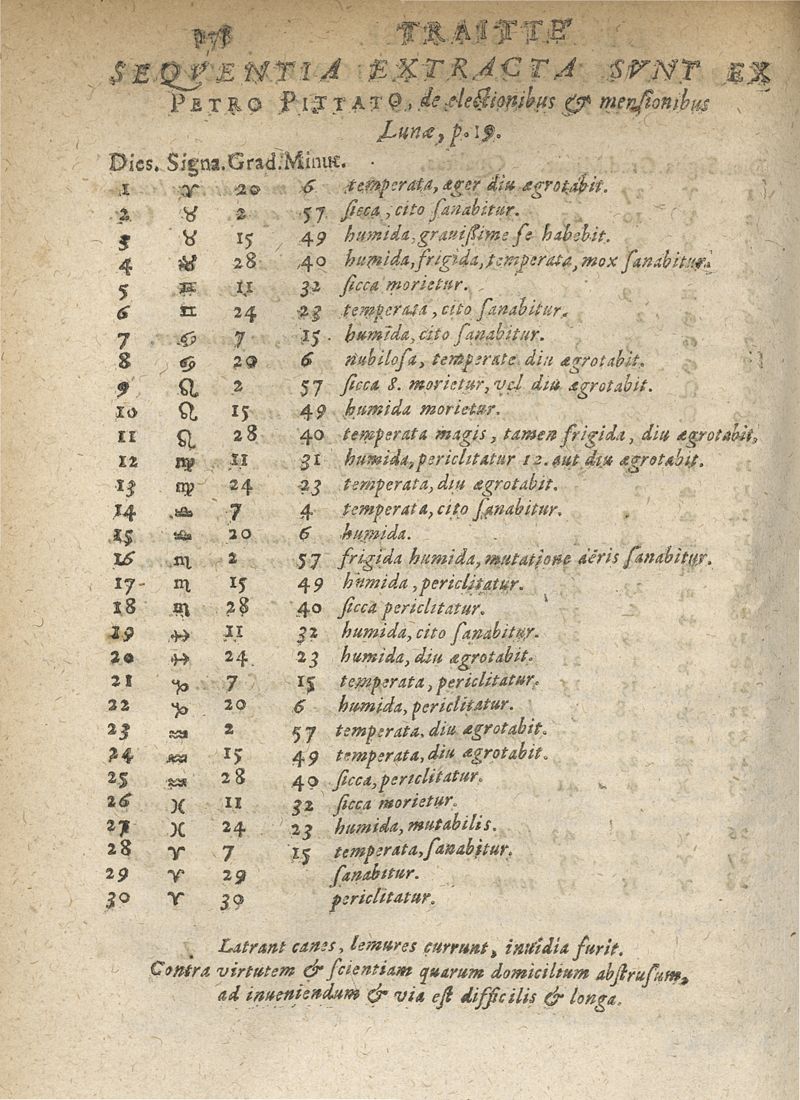 TRAITTE
SEQVENTIA EXTRACTA SVNT EX
PETRO PITTATO, de electionibus & mensionibus
Lunæ, p.19.
Dies. Signa. Grad. Minut.
1 ♈ 20 6 temperata, æger diu ægrotabit.
2 ♉ 2 57 ſicca, cito ſanabitur.
3 ♉ 15 49 humida, grauiſſime ſe habebit.
4 ♉ 28 40 humida, frigida, temperata, mox ſanabitur.
5 ♊ 11 32 ſicca morietur.
6 ♊ 24 23 temperata, cito ſanabitur.
7 ♋ 7 15 humida, cito ſanabitur.
8 ♋ 20 6 nubiloſa, temperate diu ægrotabit.
9 ♌ 2 57 ſicca 8. morietur, vel diu ægrotabit.
10 ♌ 15 49 humida morietur.
11 ♌ 28 40 temperata magis, tamen frigida, diu ægrotabit,
12 ♍ 11 31 humida, periclitatur 12. aut diu ægrotabit.
13 ♍ 24 23 temperata, diu ægrotabit.
14 ♎ 7 4 temperata, cito ſanabitur.
15 ♎ 20 6 humida.
16 ♏ 2 57 frigida humida, mutatione aëris ſanabitur.
17 ♏ 15 49 humida, periclitatur.
18 ♏ 28 40 ſicca periclitatur.
19 ♐ 11 32 humida, cito ſanabitur.
20 ♐ 24 23 humida, diu ægrotabit.
21 ♑ 7 15 temperata, periclitatur.
22 ♑ 20 6 humida, periclitatur.
23 ♒ 2 57 temperata, diu ægrotabit.
24 ♒ 15 49 temperata, diu ægrotabit.
25 ♒ 28 40 ſicca, periclitatur.
26 ♓ 11 32 ſicca morietur.
27 ♓ 24 23 humida, mutabilis.
28 ♈ 7 15 temperata, ſanabitur.
29 ♈ 29 ſanabitur.
30 ♈ 30 periclitatur.
Latrant canes, lemures currunt, inuidia furit.
Contra virtutem & ſcientiam quarum domicilium abſtruſum,
ad inueniendum & via eſt difficilis & longa.